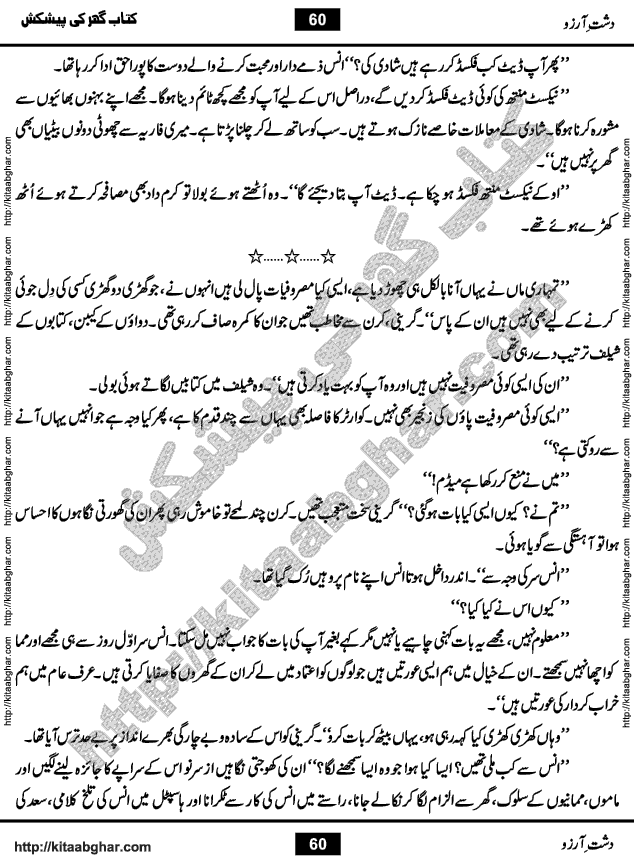 کتاب گھر کی پیشکش 60 دشتِ آرزو
’’پھر آپ ڈیٹ کب فکسڈ کر رہے ہیں شادی کی؟‘‘ انس ذمے دار اور محبت کرنے والے دوست کا پورا حق ادا کر رہا تھا۔
’’نیکسٹ منتھ کی کوئی ڈیٹ فکسڈ کر دیں گے، دراصل اس کے لیے آپ کو مجھے کچھ ٹائم دینا ہو گا۔ مجھے اپنے بہنوں بھائیوں سے
مشورہ کرنا ہو گا۔ شادی کے معاملات خاصے نازک ہوتے ہیں۔ سب کو ساتھ لے کر چلنا پڑتا ہے۔ میری فاریہ سے چھوٹی دونوں بیٹیاں بھی
گھر پر نہیں ہیں‘‘۔
’’اوکے نیکسٹ منتھ فکسڈ ہو چکا ہے۔ ڈیٹ آپ بتا دیجئے گا‘‘۔ وہ اُٹھتے ہوئے بولا تو کرم داد بھی مصافحہ کرتے ہوئے اُٹھ
کھڑے ہوئے تھے۔
☆......☆......☆
’’تمہاری ماں نے یہاں آنا بالکل ہی چھوڑ دیا ہے، ایسی کیا مصروفیات پال لی ہیں انہوں نے، جو گھڑی دو گھڑی کسی کی دِل جوئی
کرنے کے لیے بھی نہیں ہیں ان کے پاس‘‘۔ گرینی، کرن سے مخاطب تھیں جو ان کا کمرہ صاف کر رہی تھی۔ دواؤں کے کیبن، کتابوں کے
شیلف ترتیب دے رہی تھی۔
’’ان کی ایسی کوئی مصروفیت نہیں ہیں اور وہ آپ کو بہت یاد کرتی ہیں‘‘۔ وہ شیلف میں کتابیں لگاتے ہوئی بولی۔
’’ایسی کوئی مصروفیت پاؤں کی زنجیر بھی نہیں۔ کوارٹر کا فاصلہ بھی یہاں سے چند قدم کا ہے، پھر کیا وجہ ہے جو انہیں یہاں آنے
سے روکتی ہے؟‘‘
’’میں نے منع کر رکھا ہے میڈم!‘‘
’’تم نے؟ کیوں ایسی کیا بات ہو گئی؟‘‘ گرینی سخت متعجب تھیں۔ کرن چند لمحے تو خاموش رہی پھر ان کی گھورتی نگاہوں کا احساس
ہوا تو آہستگی سے گویا ہوئی۔
’’انس سر کی وجہ سے‘‘۔ اندر داخل ہوتا انس اپنے نام پر وہیں رُک گیا تھا۔
’’کیوں اس نے کیا کیا؟‘‘
’’معلوم نہیں، مجھے یہ بات کہنی چاہیے یا نہیں مگر کہے بغیر آپ کی بات کا جواب نہیں مل سکتا۔ انس سر اوّل روز سے ہی مجھے اور مما
کو اچھا نہیں سمجھتے۔ ان کے خیال میں ہم ایسی عورتیں ہیں جو لوگوں کو اعتماد میں لے کر ان کے گھروں کا صفایا کرتی ہیں۔ عرف عام میں ہم
خراب کردار کی عورتیں ہیں‘‘۔
’’وہاں کھڑی کھڑی کیا کہہ رہی ہو، یہاں بیٹھ کر بات کرو‘‘۔ گرینی کو اس کے سادہ و بے چارگی بھرے انداز پر بے حد ترس آیا تھا۔
’’انس سے کب ملی تھیں؟ ایسا کیا ہوا جو وہ ایسا سمجھنے لگا؟‘‘ ان کی کھوجتی نگاہیں از سرِ نو اس کے سراپے کا جائزہ لینے لگیں اور
ماموں، ممانیوں کے سلوک، گھر سے الزام لگا کر نکالے جانا، راستے میں انس کی کار سے ٹکرانا اور ہاسپٹل میں انس کی تلخ کلامی، سعد کی
http://kitaabghar.com 60 دشتِ آرزو
http://kitaabghar.com http://kitaabghar.com http://kitaabghar.com http://kitaabghar.com http://kitaabghar.com http://kitaabghar.com
http://kitaabghar.com http://kitaabghar.com http://kitaabghar.com http://kitaabghar.com http://kitaabghar.com http://kitaabghar.com
کتاب گھر کی پیشکش
http://kitaabghar.com